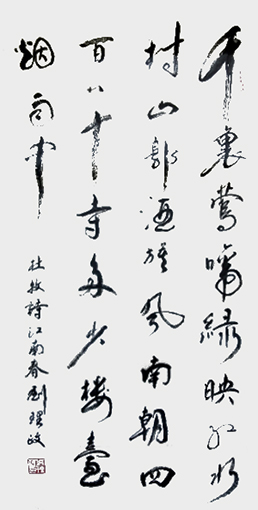 千裏鶯啼绿映红水
村山郭酒旗风南朝四
百八十寺多少樓臺
烟雨中
杜牧詩江南春劉理政